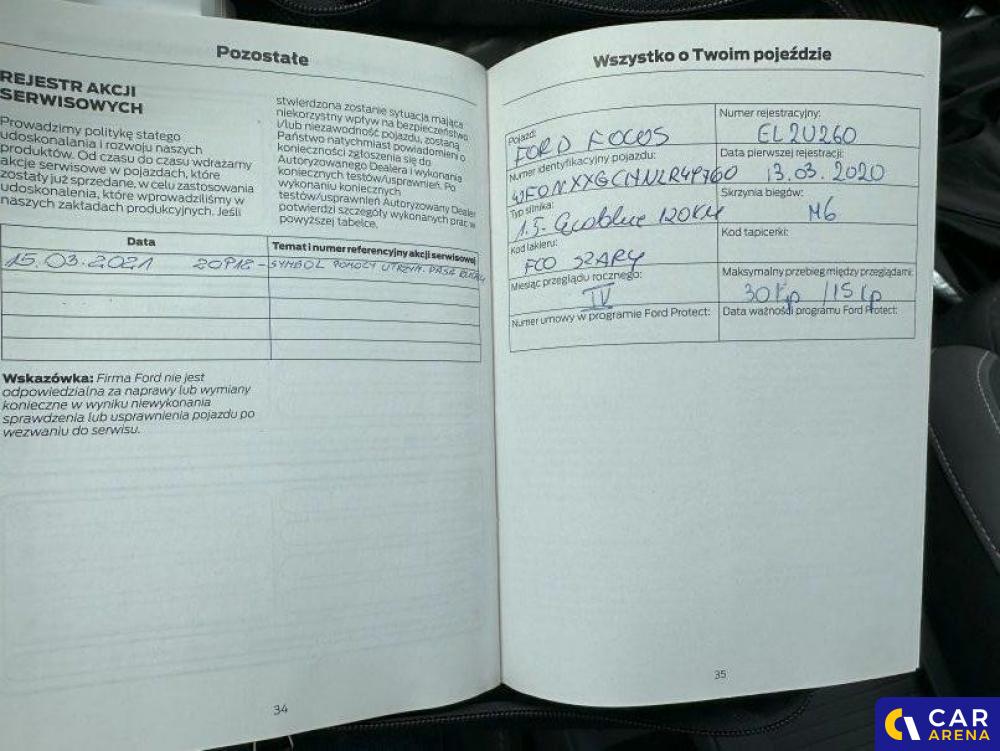 Pozostałe
REJESTR AKCJI
SERWISOWYCH
Prowadzimy politykę stałego
udoskonalania i rozwoju naszych
produktów. Od czasu do czasu wdrażamy
akcje serwisowe w pojazdach, które
zostały już sprzedane, w celu zastosowania
udoskonalenia, które wprowadziliśmy w
naszych zakładach produkcyjnych. Jeśli
stwierdzona zostanie sytuacja mająca
niekorzystny wpływ na bezpieczeństwo
i/lub niezawodność pojazdu, zostaną
Państwo natychmiast powiadomieni o
konieczności zgłoszenia się do
Autoryzowanego Dealera i wykonania
koniecznych testów/usprawnień. Po
wykonaniu koniecznych
testów/usprawnień Autoryzowany Dealer
potwierdzi szczegóły wykonanych prac w
powyższej tabelce.
Data
Temat i numer referencyjny akcji serwisowej
15.03.2021 20P12 - SYMBOL POMOCY UTRZYM. PASA RUCHU
Wskazówka: Firma Ford nie jest
odpowiedzialna za naprawy lub wymiany
konieczne w wyniku niewykonania
sprawdzenia lub usprawnienia pojazdu po
wezwaniu do serwisu.
34
Wszystko o Twoim pojeździe
Pojazd:
FORD FOCUS
Numer rejestracyjny:
EL2U260
Numer identyfikacyjny pojazdu:
Data pierwszej rejestracji:
13.03.2020
Typ silnika:
1.5 Ecoblue 120KM
Skrzynia biegów:
M6
Kod lakieru:
Kod tapicerki:
Miesiąc przeglądu rocznego:
IV
Maksymalny przebieg między przeglądami:
Numer umowy w programie Ford Protect:
Data ważności programu Ford Protect:
35
CAR
ARENA